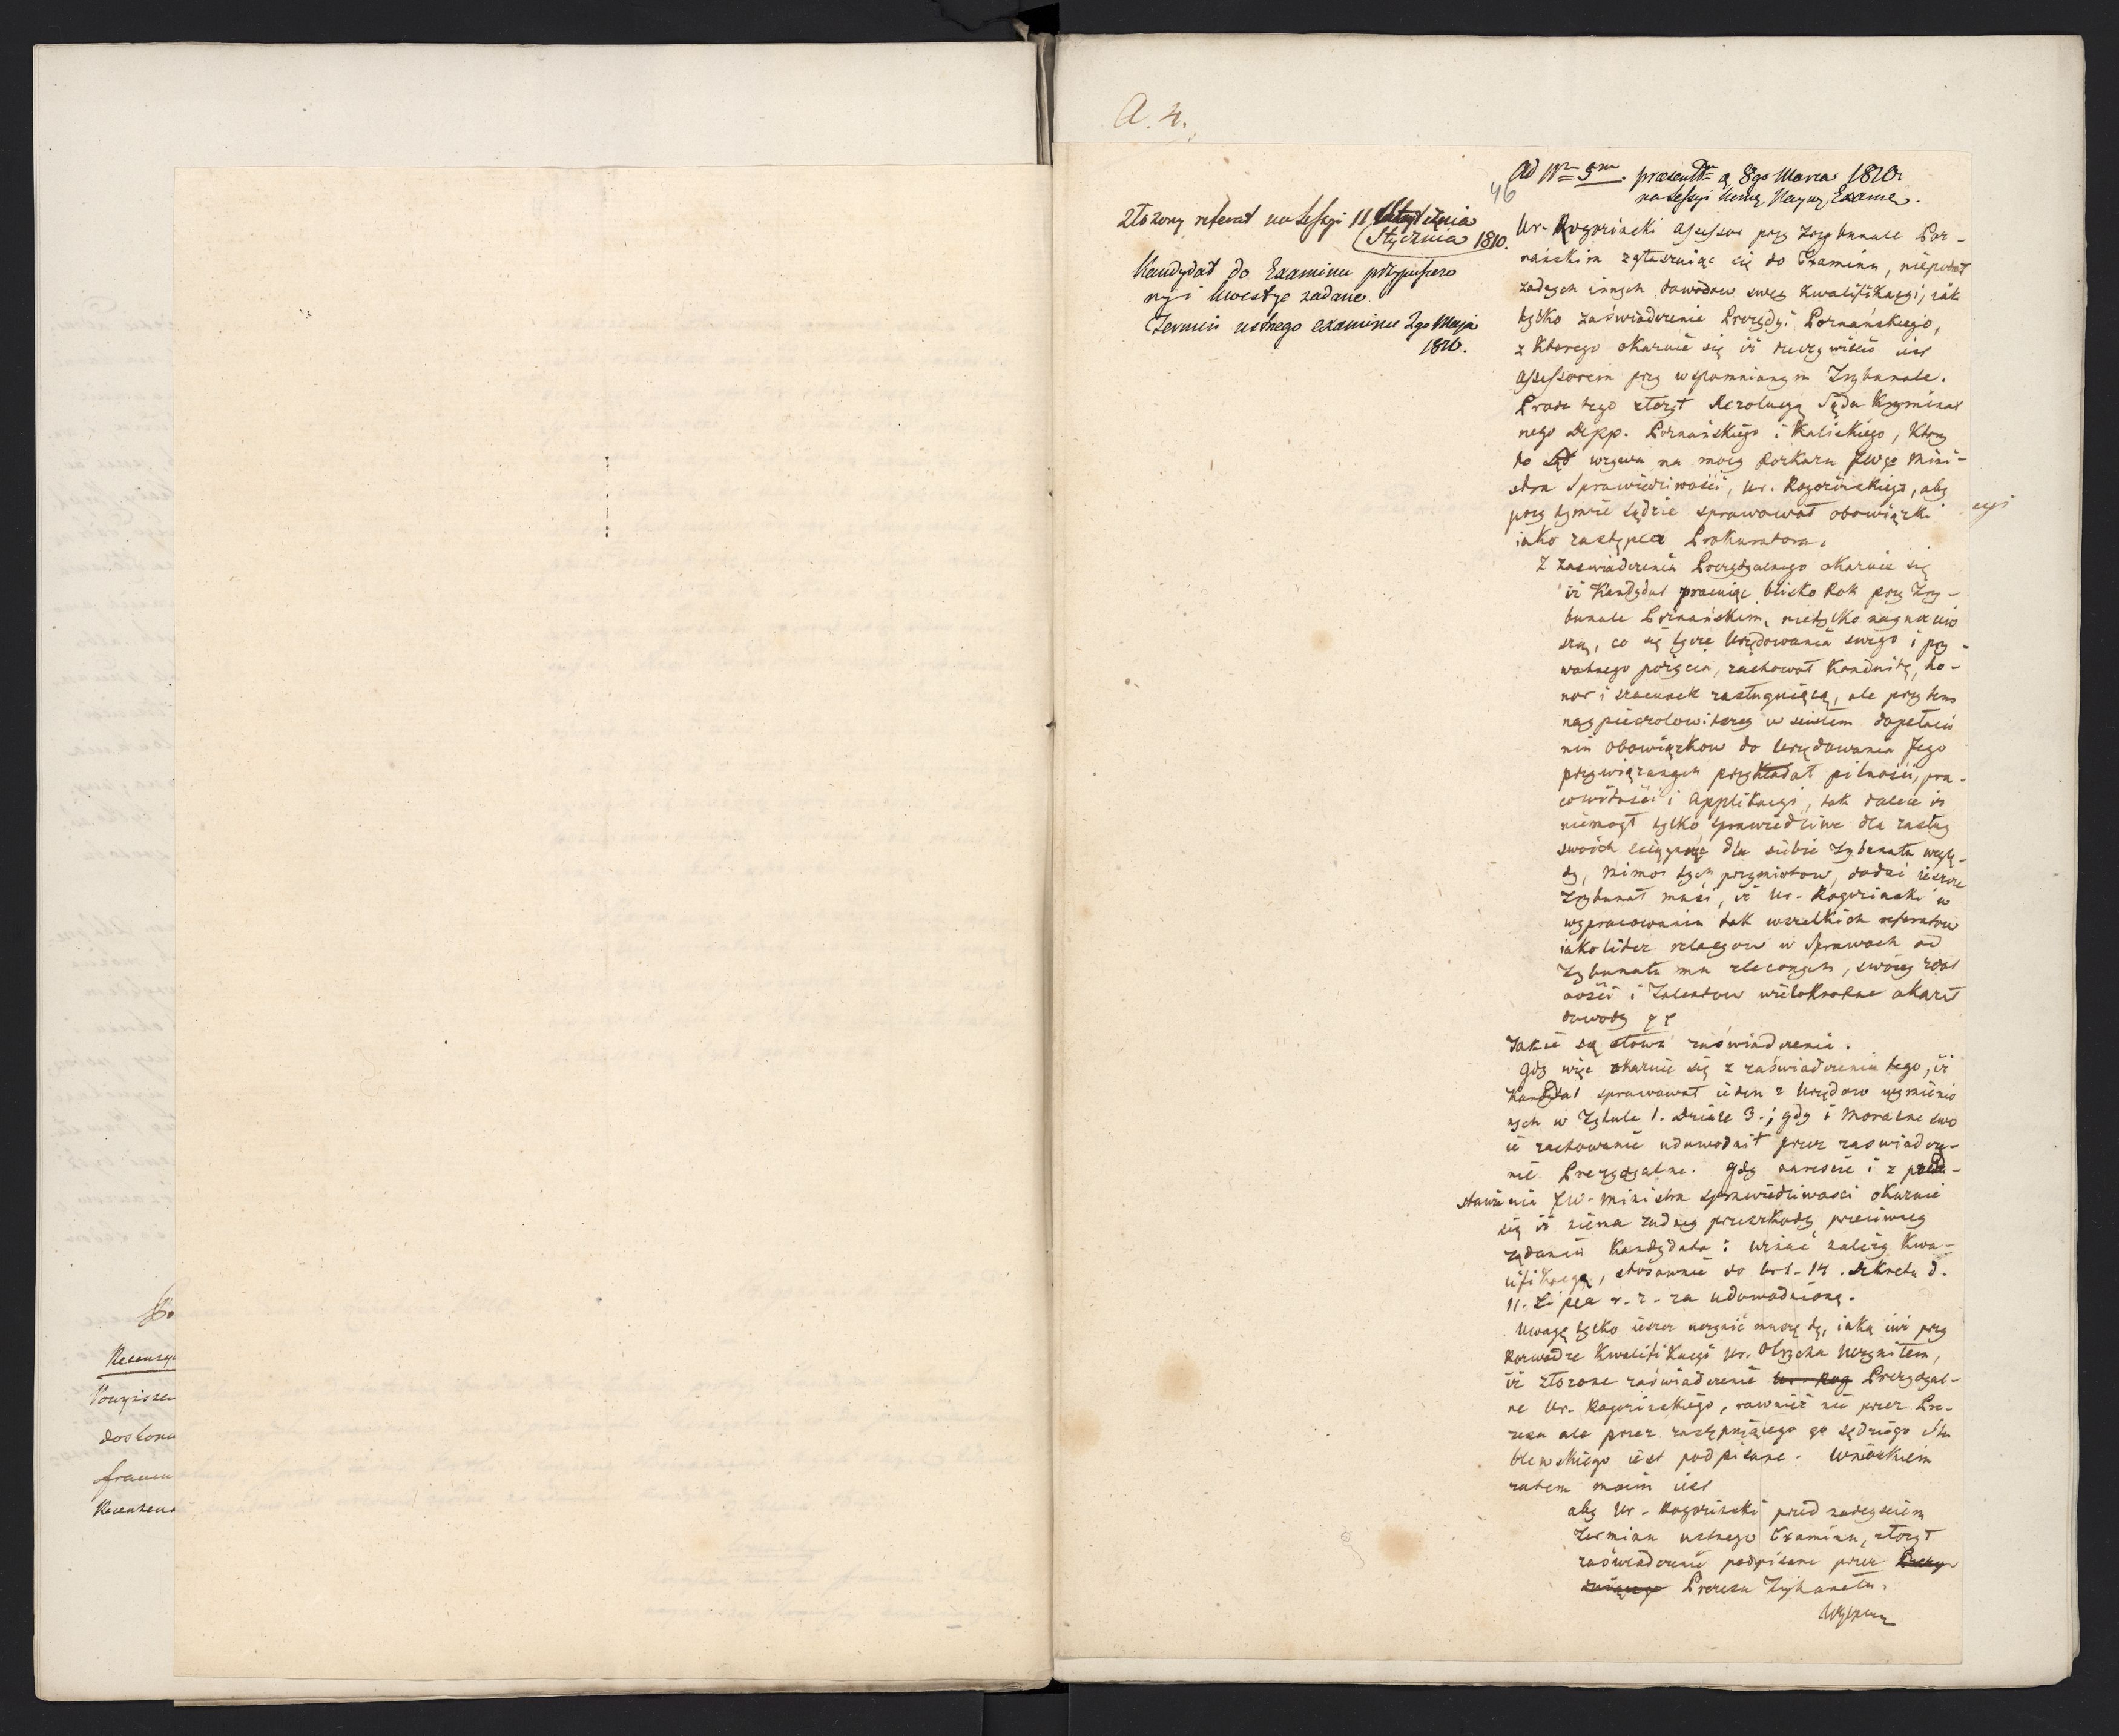 A. 4.
46
Ad Nr 5m. praesent. d. 8go Marca 1810
na Sessyi Komis. Nayw. Exame.
Złożony referat na Sessyi 11
Stycznia 1810.
Kandydat do Examinu przypuszczo
ny i kwestye zadane
Termin ustnego examinu 2go Maja
1810.
Ur. Rogoziński Assessor przy Trybunale Poz-
nańskim zgłaszaiąc się do Examinu, niepodał
żadnych innych dowodow swey kwalifikacyi, iak
tylko zaświadczenie Prezydyi Poznańskiego,
z ktorego okazuie się iż rzeczywiście iest
Assessorem przy wspomnianym Trybunale.
Procz tego złożył Rezolucyą Sądu Kryminal
nego Depp. Poznańskiego i Kaliskiego, ktory
to Sąd wzywa na mocy Rozkazu JWgo Mini-
stra Sprawiedliwości, Ur. Rogozińskiego, aby
przy tymże Sądzie sprawował obowiązki
iako zastępca Prokuratora.
Z zaswiadczenia Prezydyalnego okazuie się
iż Kandydat pracuiąc blisko Rok przy Try-
bunale Poznańskim, nietylko naynocnie
szą, co się tycze Urzędowania swego i pry-
watnego pożycia, zachował Konduitę, ho-
nor i szacunek zasługuiącą, ale przy tem
naypieczołowitszey w scisłem dopełnie
niu obowiązkow do Urzędowania Jego
przywiązanych przykładał pilności, pra-
cowitości i applikacyi, tak dalece iż
niemogł tylko sprawiedliwe dla zasług
swoich ściągnąć dla siebie Trybunału wzglę-
dy, Mimo tych przymiotow, dodać ieszcze
Trybunał musi, iż Ur. Rogoziński w
wypracowaniu tak wszelkich referatow
iako liteż relacyow w Sprawach od
Trybunału mu zleconych, swoiey zdol
ności i Talentow wielokrotne okazał
dowody
Takie są słowa zaświadczenia.
Gdy więc okazuie się z zaświadczenia tego, iż
Kandydat sprawował ieden z Urzędow wymienio
nych w Tytule 1. Dziale 3.; gdy i Moralne swo
ie zachowanie udowodnił przez zaswiadcze-
nie Prezydyalne. Gdy nareście i z przed-
stawienia JW. Ministra Sprawiedliwosci okazuie
się iż niema żadney przeszkody przeciwney
żądaniu Kandydata: Uznać należy Kwa-
lifikacyą, stosownie do Art. 14. Dekretu d.
11. Lipca r. z. za udowodnioną.
Uwagę tylko ieszcze uczynić muszę tę, iaką iuż przy
Rozwadze Kwalifikacyi Ur. Olrycha uczyniłem,
iż złożone zaświadczenie Ur. Rog Prezydyal-
ne Ur. Rogozińskiego, rownież nie przez Pre-
zesa ale przez zastępuiącego go Sędziego Sta
blewskiego iest podpisane. Wnioskiem
zatem moim iest
aby Ur. Rogoziński przed nadeyściem
Terminu ustnego Examinu, złożył
zaświadczenie podpisane przez
Prezesa Trybunału.